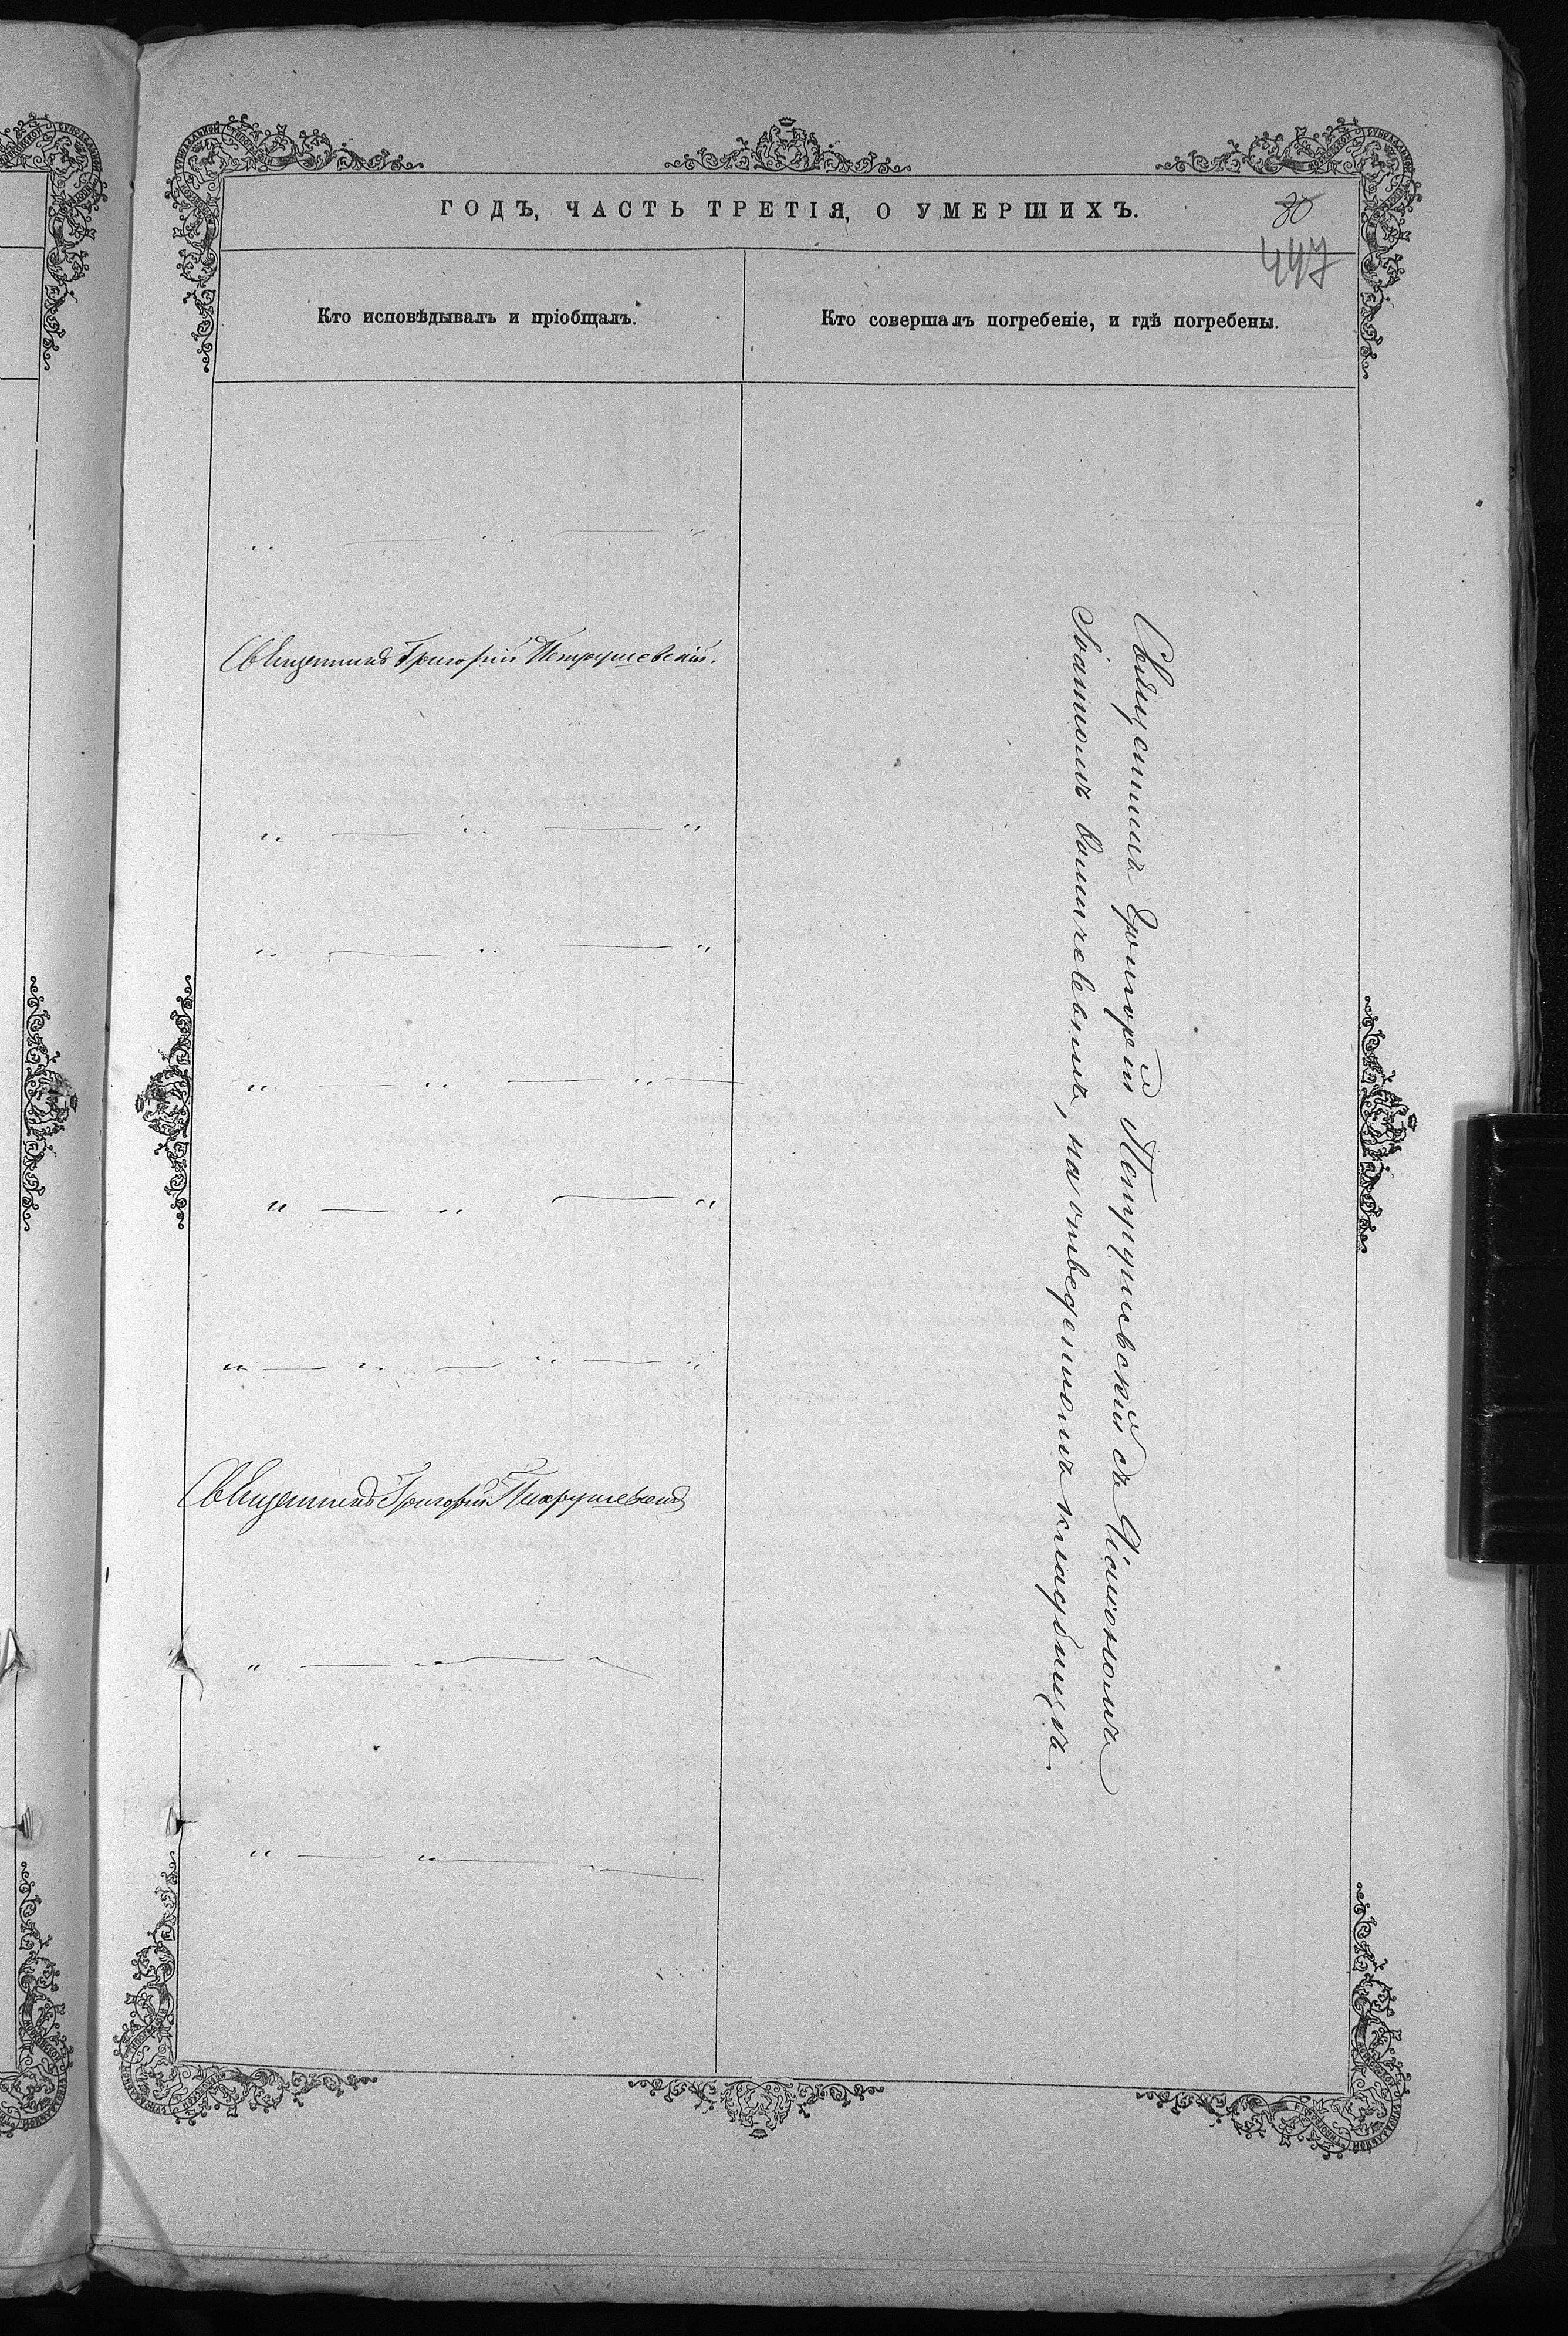 ГОДЪ, ЧАСТЬ ТРЕТІЯ, О УМЕРШИХЪ.
30
447
Кто исповѣдывалъ и пріобщалъ.
Кто совершалъ погребеніе, и гдѣ погребены.
„ — „ — „
Священникъ Григорій Петрушевскій.
„ — „ — „
„ — „ — „
„ — „ — „ —
„ — „ — „
„ — „ — „ — „
Священникъ Григорій Петрушевскій
„ — „ — „
„ — „ — „
Священникъ Григорій Петрушевскій съ
на отведенномъ кладбищѣ.